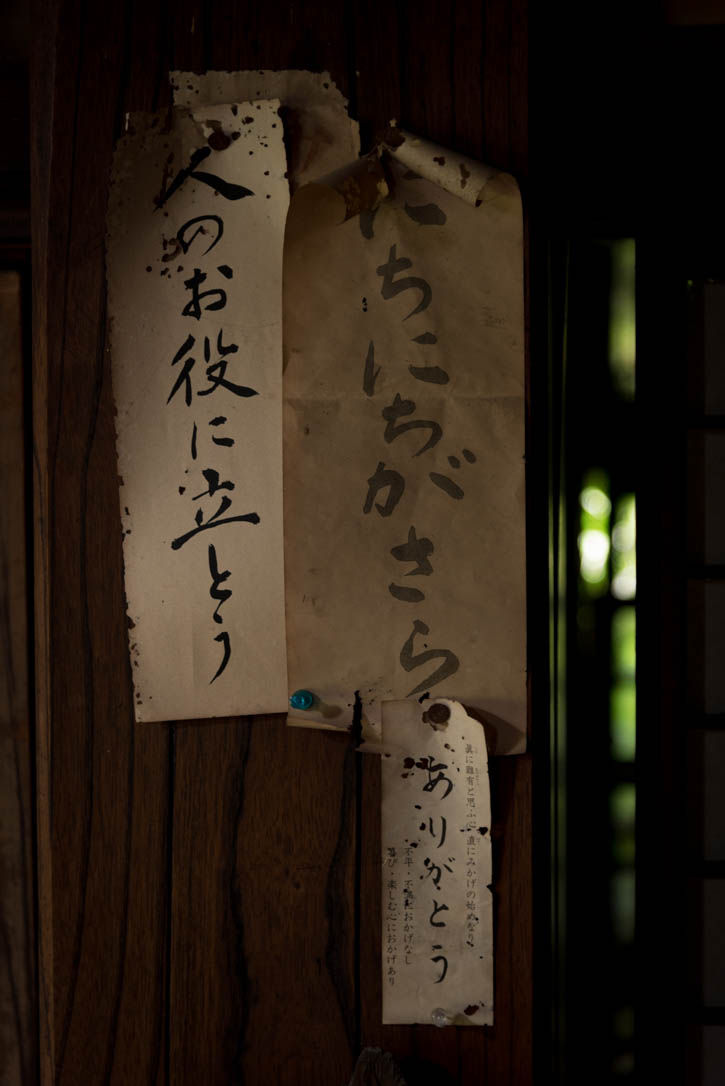 人のお役に立とう
にちにちがさら
眞に難有と思ふ心直にみかげの始めなり
ありがとう
不平・不足におかげなし
喜び・楽しむ心におかげあり